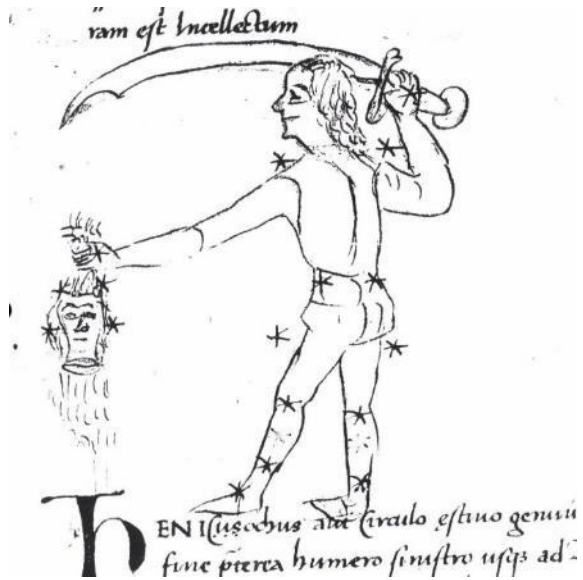 ram est Intellectum
HENIusochus aut Circulo estiuo genuu
fine pterea humero sinistro usqꝫ ad